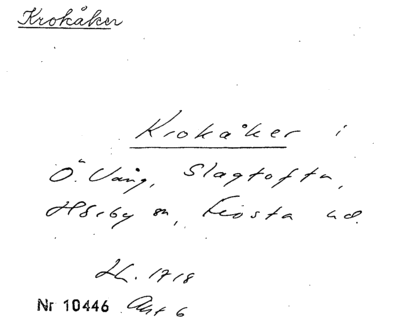 Krokåker
Krokåker i
Ö. Vång, Slagtofta,
Hörby sn, Frosta hd.
LM. 1718
Nr 10446 Akt 6